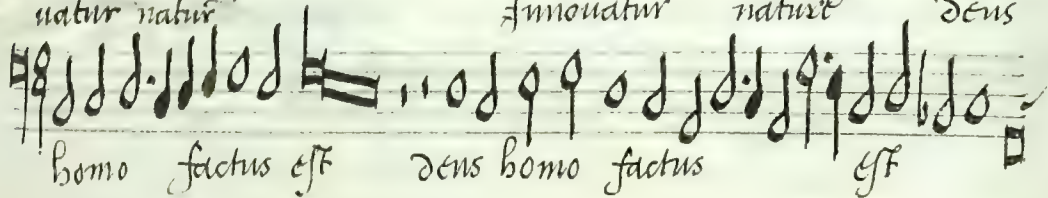 uatur natur Innouatur nature deus
homo factus est deus homo factus est